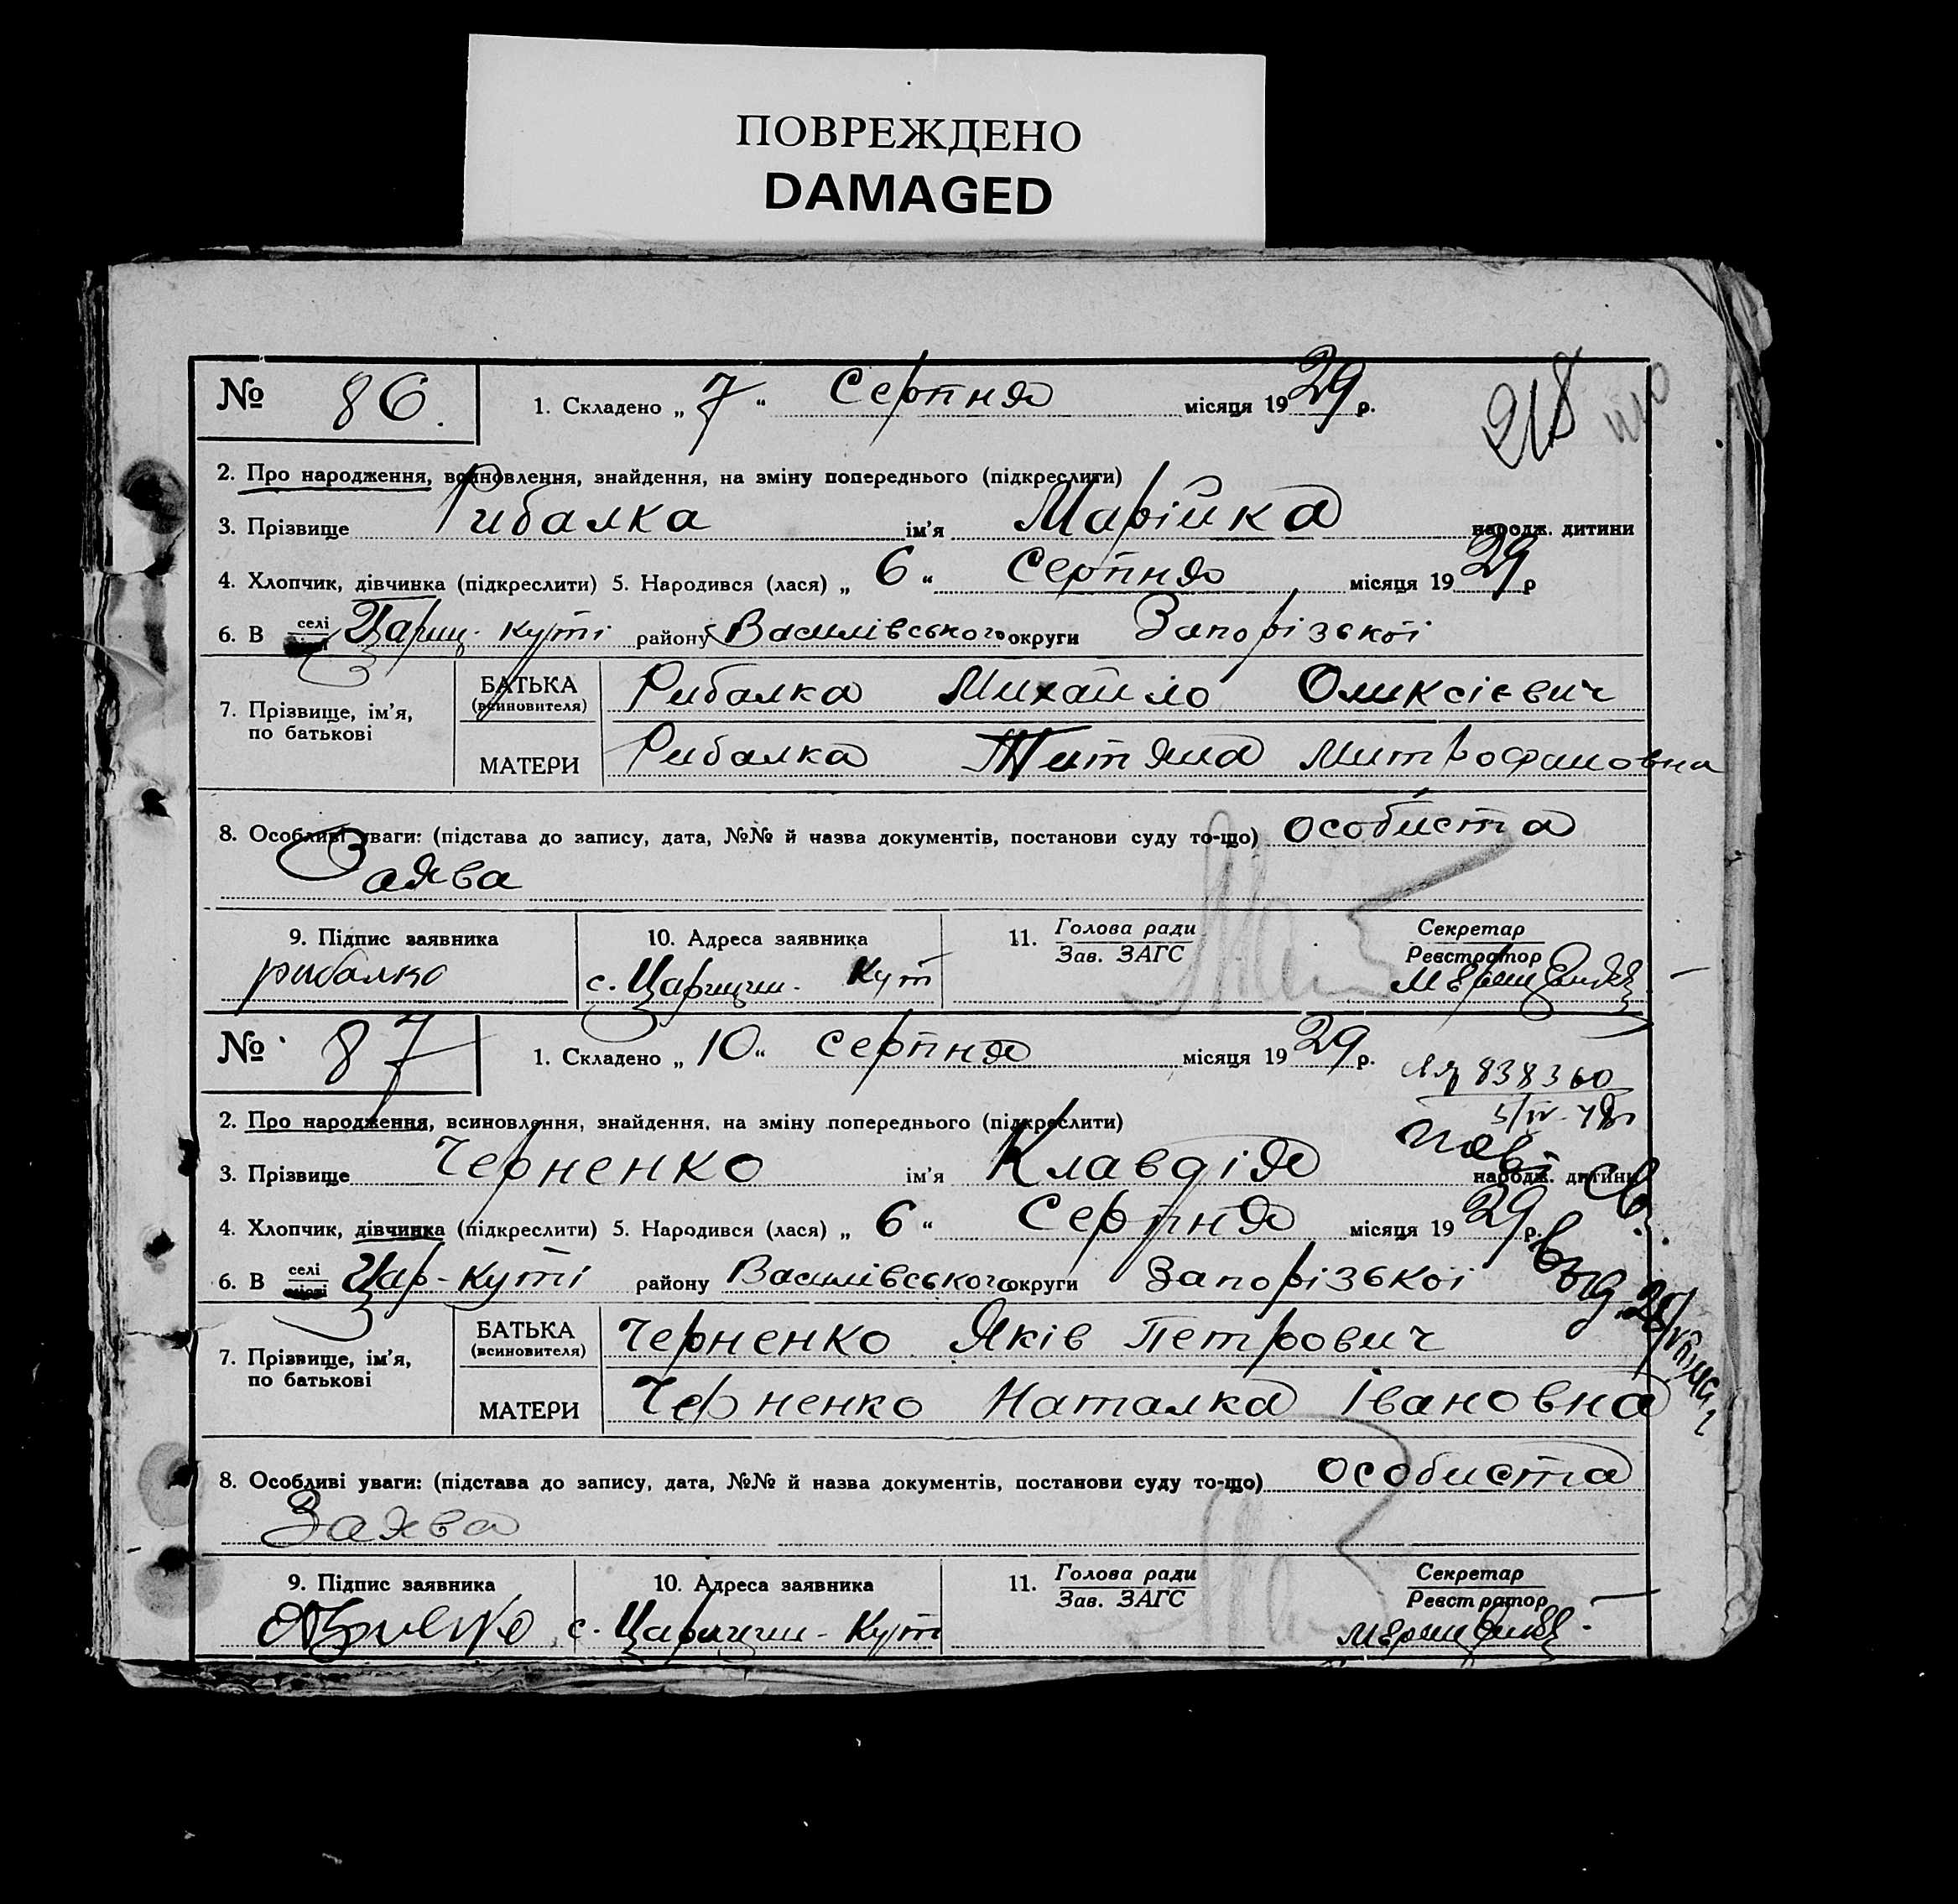 ПОВРЕЖДЕНО
DAMAGED
№ 86. 1. Складено „ 7 “ Серпня місяця 1929 р. 218
2. Про народження, всиновлення, знайдення, на зміну попереднього (підкреслити)
3. Прізвище Рибалка ім’я Марійка народж. дитини
4. Хлопчик, дівчинка (підкреслити) 5. Народився (лася) „ 6 “ Серпня місяця 1929 р
6. В селі Цариц. Куті району Василівського округи Запорізької
7. Прізвище, ім’я, по батькові
БАТЬКА (всиновителя) Рибалка Михайло Оликсієвич
МАТЕРИ Рибалка Титяна Митрофановна
8. Особливі уваги: (підстава до запису, дата, №№ й назва документів, постанови суду то-що) особиста
Заява
9. Підпис заявника 10. Адреса заявника 11. Голова ради Секретар
Зав. ЗАГС Реєстратор
рибалко с. Царицин. Кут
№ 87 1. Складено „ 10 “ серпня місяця 1929 р.
838360
2. Про народження, всиновлення, знайдення, на зміну попереднього (підкреслити)
3. Прізвище Черненко ім’я Клавдія народж. дитини
4. Хлопчик, дівчинка (підкреслити) 5. Народився (лася) „ 6 “ Серпня місяця 1929 р.
6. В селі Цар-Куті району Василівського округи Запорізької
7. Прізвище, ім’я, по батькові
БАТЬКА (всиновителя) Черненко Яків Петрович
МАТЕРИ Черненко Наталка Івановна
8. Особливі уваги: (підстава до запису, дата, №№ й назва документів, постанови суду то-що) особиста
Заява
9. Підпис заявника 10. Адреса заявника 11. Голова ради Секретар
Зав. ЗАГС Реєстратор
с. Царицин-Кут